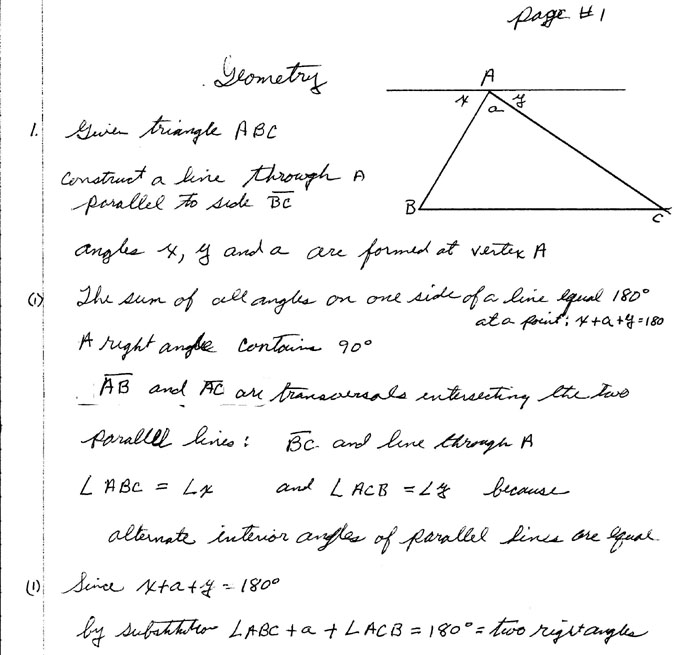 page #1
Geometry
A
x a y
B
C
1. Given triangle ABC
Construct a line through A
parallel to side B̅C̅
angles x, y and a are formed at vertex A
(1) The sum of all angles on one side of a line equal 180°
at a point; x+a+y=180
A right angle contains 90°
A̅B̅ and A̅C̅ are transversals intersecting the two
parallel lines: B̅C̅ and line through A
∠ABC = ∠x and ∠ACB = ∠y because
alternate interior angles of parallel lines are equal
(1) Since x+a+y = 180°
by substitution ∠ABC + a + ∠ACB = 180° = two right angles